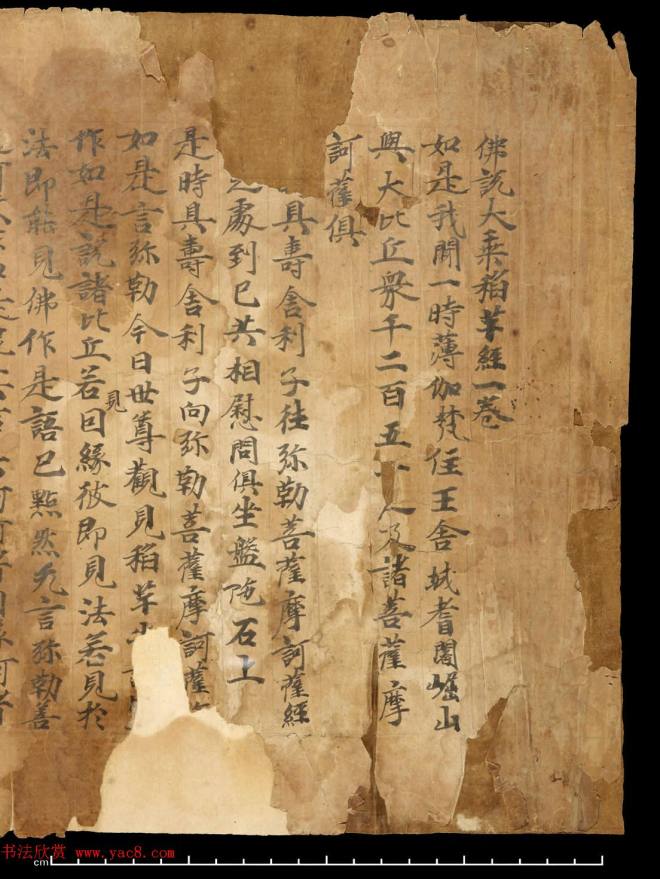 佛說大乘稻芉經一卷
如是我聞一時薄伽梵住王舍城耆闍崛山
與大比丘衆千二百五 人及諸菩薩摩
訶薩俱
具壽舍利子往弥勒菩薩摩訶薩經
之處到已共相慰問俱坐盤陁石上
是時具壽舍利子向弥勒菩薩摩訶薩
如是言弥勒今日世尊觀見稻芉
作如是說諸比丘若見因緣彼即見法若見於
法即能見佛作是語已黙然无言弥勒善
书法欣赏 www.yac8.com
cm